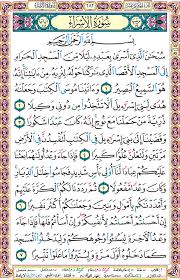 ٢٨٢
سُورَةُ الْإِسْرَاءِ
بِسْمِ اللَّهِ الرَّحْمَٰنِ الرَّحِيمِ
سُبْحَٰنَ الَّذِي أَسْرَىٰ بِعَبْدِهِ لَيْلًا مِّنَ الْمَسْجِدِ الْحَرَامِ
إِلَى الْمَسْجِدِ الْأَقْصَا الَّذِي بَٰرَكْنَا حَوْلَهُ لِنُرِيَهُ مِنْ ءَايَٰتِنَا إِنَّهُ
هُوَ السَّمِيعُ الْبَصِيرُ ١ وَءَاتَيْنَا مُوسَى الْكِتَٰبَ وَجَعَلْنَٰهُ
هُدًى لِّبَنِي إِسْرَٰءِيلَ أَلَّا تَتَّخِذُوا مِن دُونِي وَكِيلًا ٢
ذُرِّيَّةَ مَنْ حَمَلْنَا مَعَ نُوحٍ إِنَّهُ كَانَ عَبْدًا شَكُورًا ٣
وَقَضَيْنَا إِلَىٰ بَنِي إِسْرَٰءِيلَ فِي الْكِتَٰبِ لَتُفْسِدُنَّ فِي الْأَرْضِ
مَرَّتَيْنِ وَلَتَعْلُنَّ عُلُوًّا كَبِيرًا ٤ فَإِذَا جَاءَ وَعْدُ أُولَىٰهُمَا بَعَثْنَا
عَلَيْكُمْ عِبَادًا لَّنَا أُولِي بَأْسٍ شَدِيدٍ فَجَاسُوا خِلَٰلَ الدِّيَارِ
وَكَانَ وَعْدًا مَّفْعُولًا ٥ ثُمَّ رَدَدْنَا لَكُمُ الْكَرَّةَ عَلَيْهِمْ
وَأَمْدَدْنَٰكُم بِأَمْوَٰلٍ وَبَنِينَ وَجَعَلْنَٰكُمْ أَكْثَرَ نَفِيرًا ٦
إِنْ أَحْسَنتُمْ أَحْسَنتُمْ لِأَنفُسِكُمْ وَإِنْ أَسَأْتُمْ فَلَهَا فَإِذَا جَاءَ
وَعْدُ الْآخِرَةِ لِيَسُۥٓءُوا وُجُوهَكُمْ وَلِيَدْخُلُوا الْمَسْجِدَ
كَمَا دَخَلُوهُ أَوَّلَ مَرَّةٍ وَلِيُتَبِّرُوا مَا عَلَوْا تَتْبِيرًا ٧